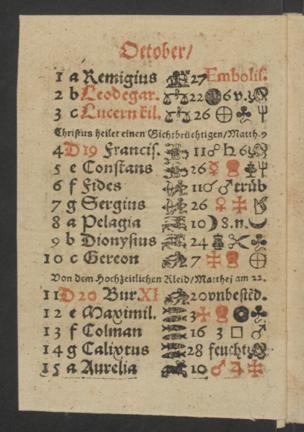 October/
1 a Remigius 27 Embolis.
2 b Leodegar. 22 6 v.
3 c Lucern kil. 26
Christus heilet einen Gichtbrüchtigen/Matth. 9
4 D 19 Francis. 11 ☍ ♄ 26
5 e Constans 26 ☿
6 f Fides 11 ☍ ♂ trüb
7 g Sergius 26 ♀ ♃
8 a Pelagia 10 ☽ 8. n.
9 b Dionysius 24
10 c Gereon 7 ☿
Von dem Hochzeitlichen Kleid/Matthej am 22.
11 D 20 Bur. XI 20 vnbestēd.
12 e Maximil. 3
13 f Colman 16 3 □ ♂
14 g Calixtus 28 feucht
15 a Aurelia 10 ♂ ♃